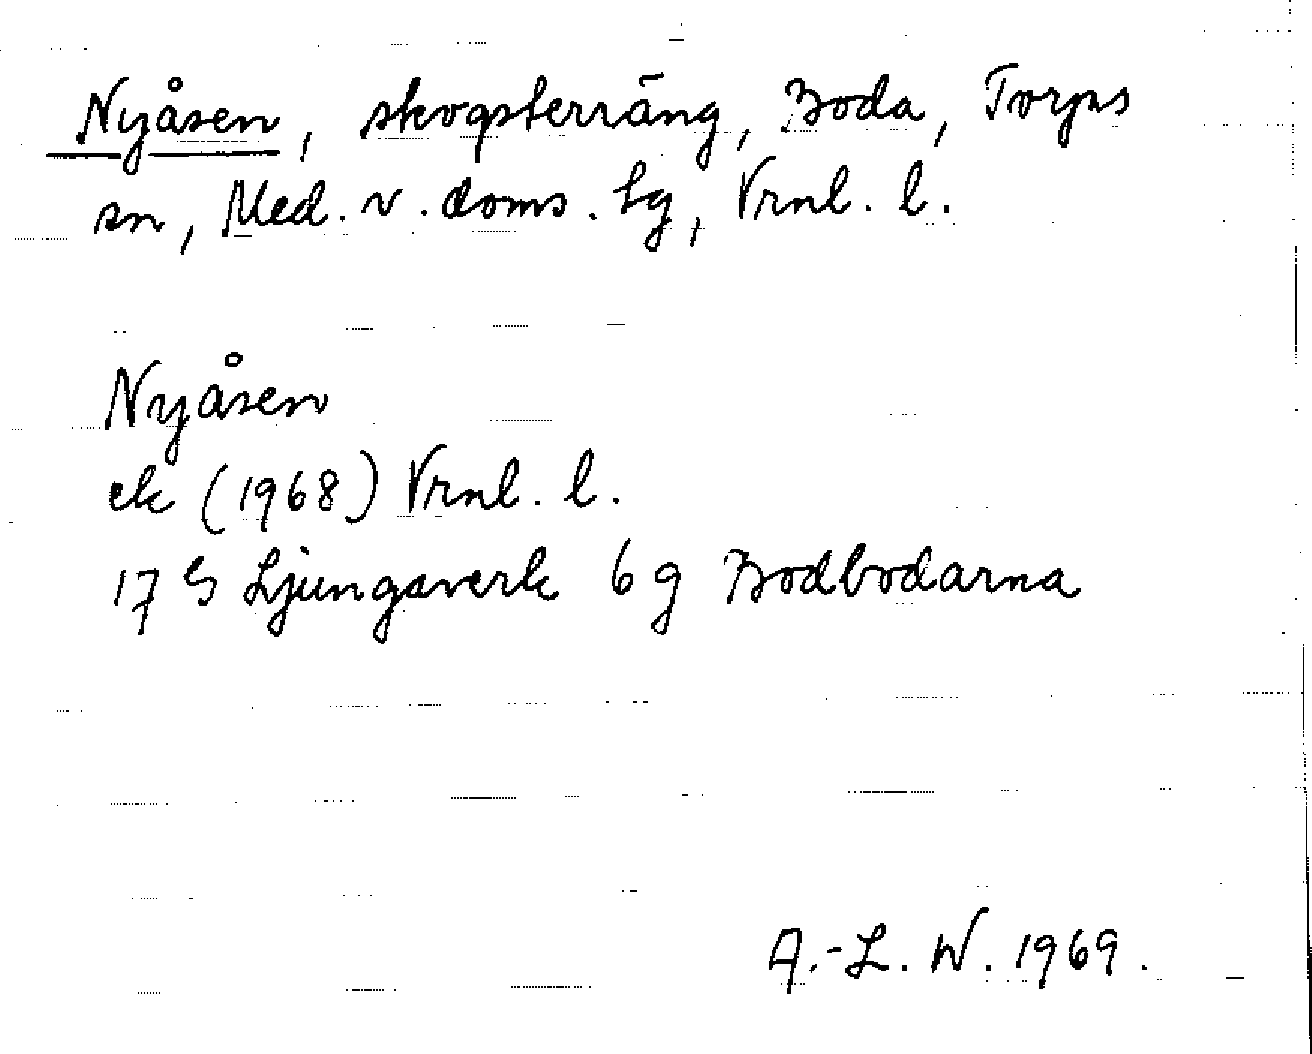 Nyåsen, skogsterräng, Boda, Torps
sn, Med. v. doms. tg, Vrnl. l.
Nyåsen
ek (1968) Vrnl. l.
17 G Ljungaverk 6 g Bodbodarna
A.-L. W. 1969.